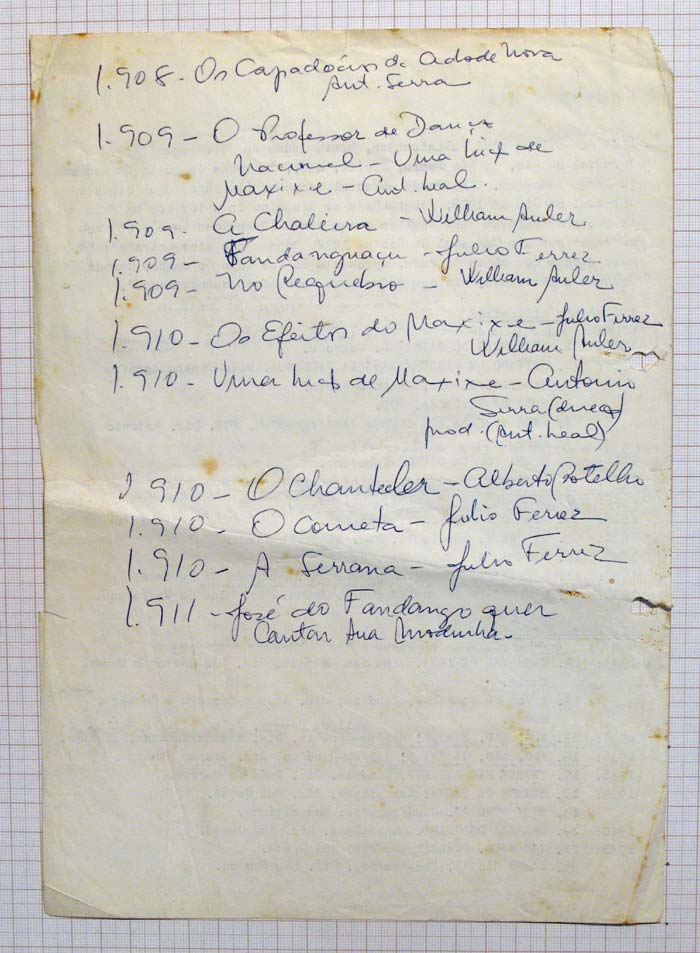 1.908 - Os Capadócios da Cidade Nova
Ant. Serra
1.909 - O Professor de Dança
Nacional - Uma lição de
Maxixe - Ant. Leal.
1.909 - A Chaleira - William Auler
1.909 - Fandanguaçu - Julio Ferrez
1.909 - No Requebro - William Auler
1.910 - Os Efeitos do Maxixe - Julio Ferrez
William Auler
1.910 - Uma lição de Maxixe - Antonio
Serra
prod. (Ant. Leal)
1.910 - O Chantecler - Alberto Botelho
1.910 - O Cometa - Julio Ferrez
1.910 - A Serrana - Julio Ferrez
1.911 - José do Fandango quer
Cantar Sua Modinha.